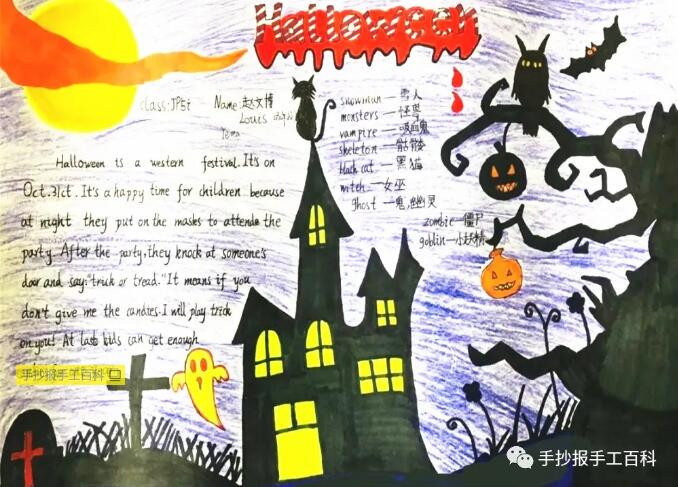 Halloween
class:JP5t Name:赵文博
Louis
snowman—雪人
monsters—怪兽
vampire—吸血鬼
skeleton—骷髅
black cat—黑猫
witch—女巫
ghost—鬼,幽灵
zombie—僵尸
goblin—小妖精
Halloween is a western festival. It's on
Oct.31ct. It's a happy time for children. because
at night they put on the masks to attende the
party. After the party, they knock at someone's
door and say:"trick or tread." It means if you
don't give me the candies. I will play trick
on you! At last kids can get enough
手抄报手工百科
手抄报手工百科